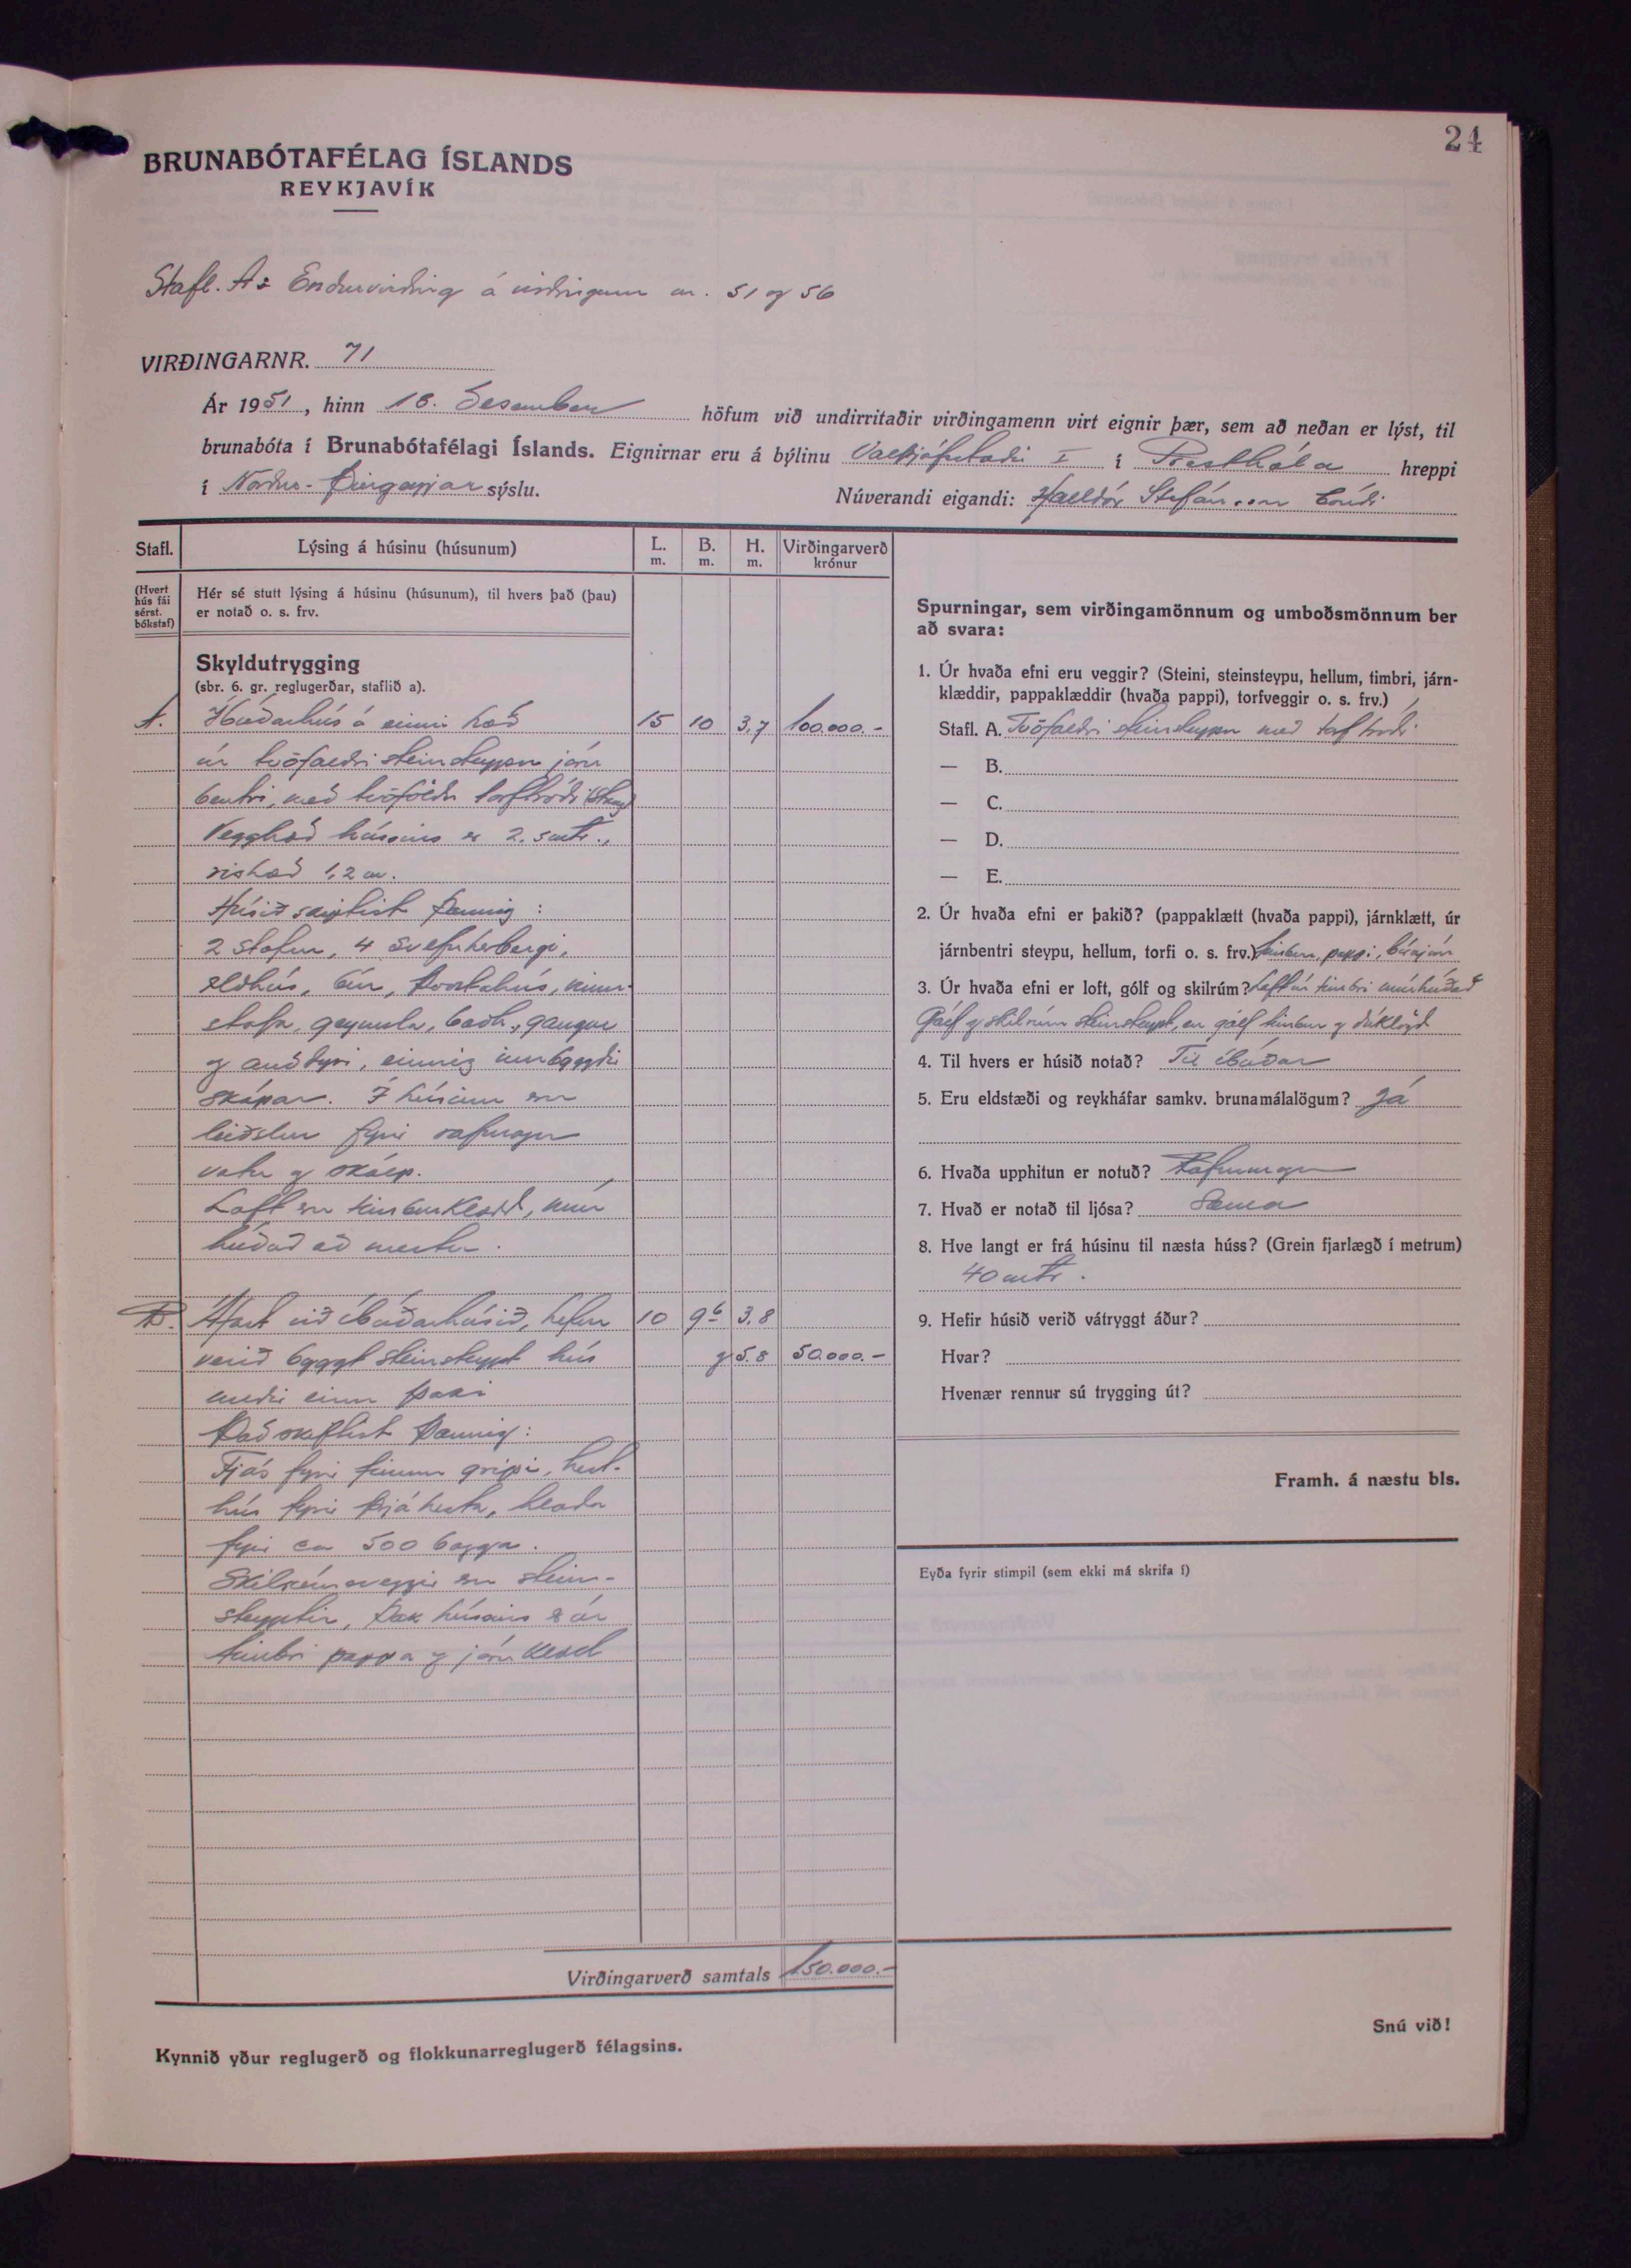 24
BRUNABÓTAFÉLAG ÍSLANDS
REYKJAVÍK
Stafl. A: Endurvirðing á virðingum nr. 51 og 56
VIRÐINGARNR. 71
Ár 1951, hinn 18. Desember höfum við undirritaðir virðingamenn virt eignir þær, sem að neðan er lýst, til
brunabóta í Brunabótafélagi Íslands. Eignirnar eru á býlinu Valþjófsstaði I í Presthóla hreppi
í Norður-Þingeyjar sýslu. Núverandi eigandi: Halldór Stefánsson bóndi
Stafl. Lýsing á húsinu (húsunum) L. m. B. m. H. m. Virðingarverð krónur
(Hvert hús fái sérst. bókstaf)
Hér sé stutt lýsing á húsinu (húsunum), til hvers það (þau)
er notað o. s. frv.
Skyldutrygging
(sbr. 6. gr. reglugerðar, staflið a).
A. Íbúðarhús á einni hæð 15 10 3,7 100.000.-
úr tvöfaldri steinsteypu járn
bentri, með tvöföldu torftróði
Vegghæð hússins er 2.5 mtr.,
rishæð 1,2 m.
Húsið skiptist þannig:
2 stofur, 4 svefnherbergi,
eldhús, búr, þvottahús, vinnu-
stofa, geymsla, bað, gangur
og anddyri, einnig innbyggðir
skápar. Í húsinu eru
leiðslur fyrir rafmagn
vatn og skólp.
Loft eru timburklædd, múr
húðað að mestu.
B. Áfast við íbúðarhúsið, hefur 10 9.6 3.8
verið byggt steinsteypt hús og 5.8 50.000.-
undir einu þaki
Það skiftist þannig:
Fjós fyrir fimm gripi, hest-
hús fyrir þrjá hesta, hlaða
fyrir ca 500 bagga.
Skilrúmsveggir eru stein-
steyptir, þak hússins er úr
timbri pappa og járnklædd
Virðingarverð samtals 150.000.-
Kynnið yður reglugerð og flokkunarreglugerð félagsins.
Spurningar, sem virðingamönnum og umboðsmönnum ber
að svara:
1. Úr hvaða efni eru veggir? (Steini, steinsteypu, hellum, timbri, járn-
klæddir, pappaklæddir (hvaða pappi), torfveggir o. s. frv.)
Stafl. A. Tvöfaldri steinsteypu með torftróði
— B.
— C.
— D.
— E.
2. Úr hvaða efni er þakið? (pappaklætt (hvaða pappi), járnklætt, úr
járnbentri steypu, hellum, torfi o. s. frv.) timbur, pappi, bárujárn
3. Úr hvaða efni er loft, gólf og skilrúm? Loft úr timbri múrhúðað
Gólf og skilrúm steinsteypt, en gólf timbur og dúklögð
4. Til hvers er húsið notað? Til íbúðar
5. Eru eldstæði og reykháfar samkv. brunamálalögum? Já
6. Hvaða upphitun er notuð? Rafmagn
7. Hvað er notað til ljósa? Sama
8. Hve langt er frá húsinu til næsta húss? (Grein fjarlægð í metrum)
40 mtr.
9. Hefir húsið verið vátryggt áður?
Hvar?
Hvenær rennur sú trygging út?
Framh. á næstu bls.
Eyða fyrir stimpil (sem ekki má skrifa í)
Snú við!